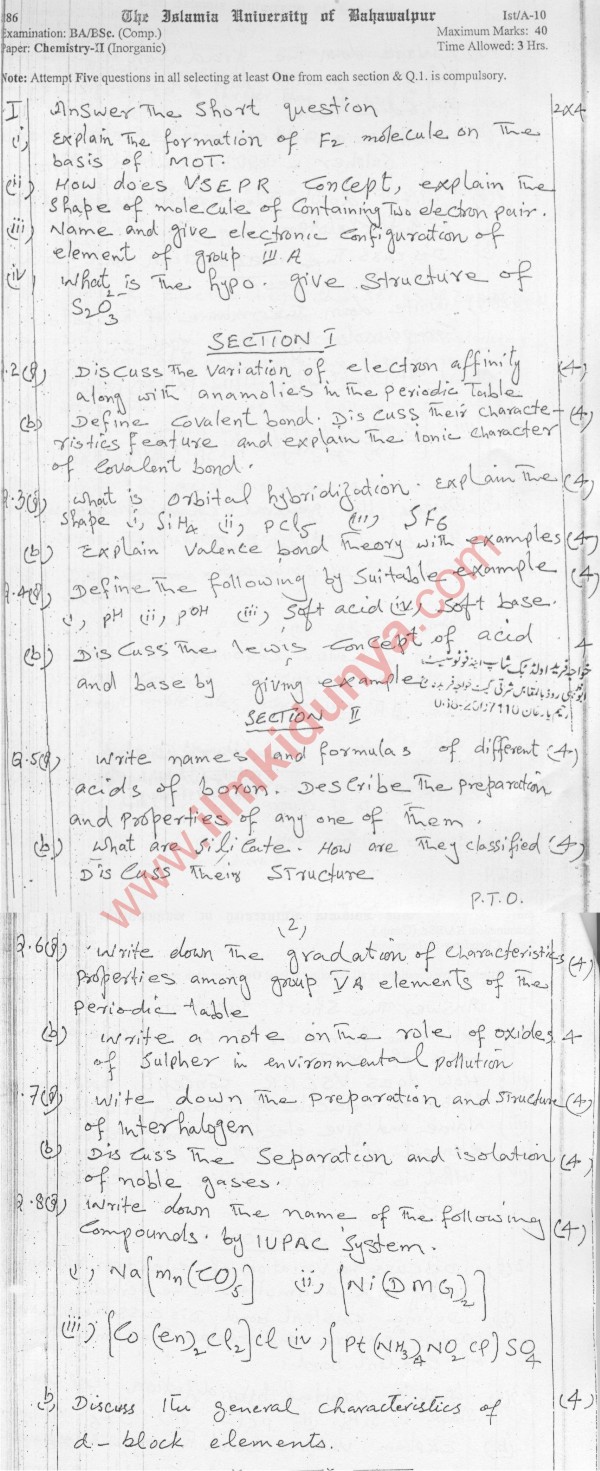 286 The Islamia University of Bahawalpur Ist/A-10
Examination: BA/BSc. (Comp.) Maximum Marks: 40
Paper: Chemistry-II (Inorganic) Time Allowed: 3 Hrs.
Note: Attempt Five questions in all selecting at least One from each section & Q.1. is compulsory.
I Answer The Short question 2x4
(i) Explain The formation of F2 molecule on The
basis of MOT.
(ii) How does VSEPR Concept, explain The
Shape of molecule of Containing Two electron pair.
(iii) Name and give electronic Configuration of
element of group III A
(iv) What is The hypo. give Structure of
S2O3^2-
SECTION I
Q.2(a) Discuss The Variation of electron affinity (4)
along with anamolies in The Periodic Table
(b) Define Covalent bond. Discuss Their Characte- (4)
ristics Feature and explain The Ionic Character
of Covalent bond.
Q.3(a) What is Orbital hybridization. Explain The (4)
Shape i, SiH4 (ii) PCl5 (iii) SF6
(b) Explain Valence bond Theory with examples (4)
Q.4(a) Define The following by Suitable example (4)
i, pH (ii) pOH (iii) Soft acid (iv) Soft base.
(b) Discuss The lewis Concept of acid 4
and base by giving example
SECTION II
Q.5(a) Write names and formulas of different (4)
acids of boron. Describe The preparation
and Properties of any one of Them.
(b) What are Silicate. How are They classified (4)
Discuss Their Structure
P.T.O.
www.ilmkidunya.com
(2)
Q.6(a) Write down The gradation of Characteristics (4)
Properties among group VA elements of The
Periodic Table
(b) Write a note on The role of oxides 4
of Sulpher in environmental pollution
Q.7(a) Wite down The preparation and Structure (4)
of Interhalogen
(b) Discuss The Separation and isolation (4)
of noble gases.
Q.8(a) Write down The name of The following (4)
Compounds. by IUPAC System.
i, Na[Mn(CO)5] (ii) [Ni(DMG)2]
(iii) [Co(en)2Cl2]Cl (iv) [Pt(NH3)4NO2Cl]SO4
(b) Discuss The general characteristics of (4)
d-block elements.